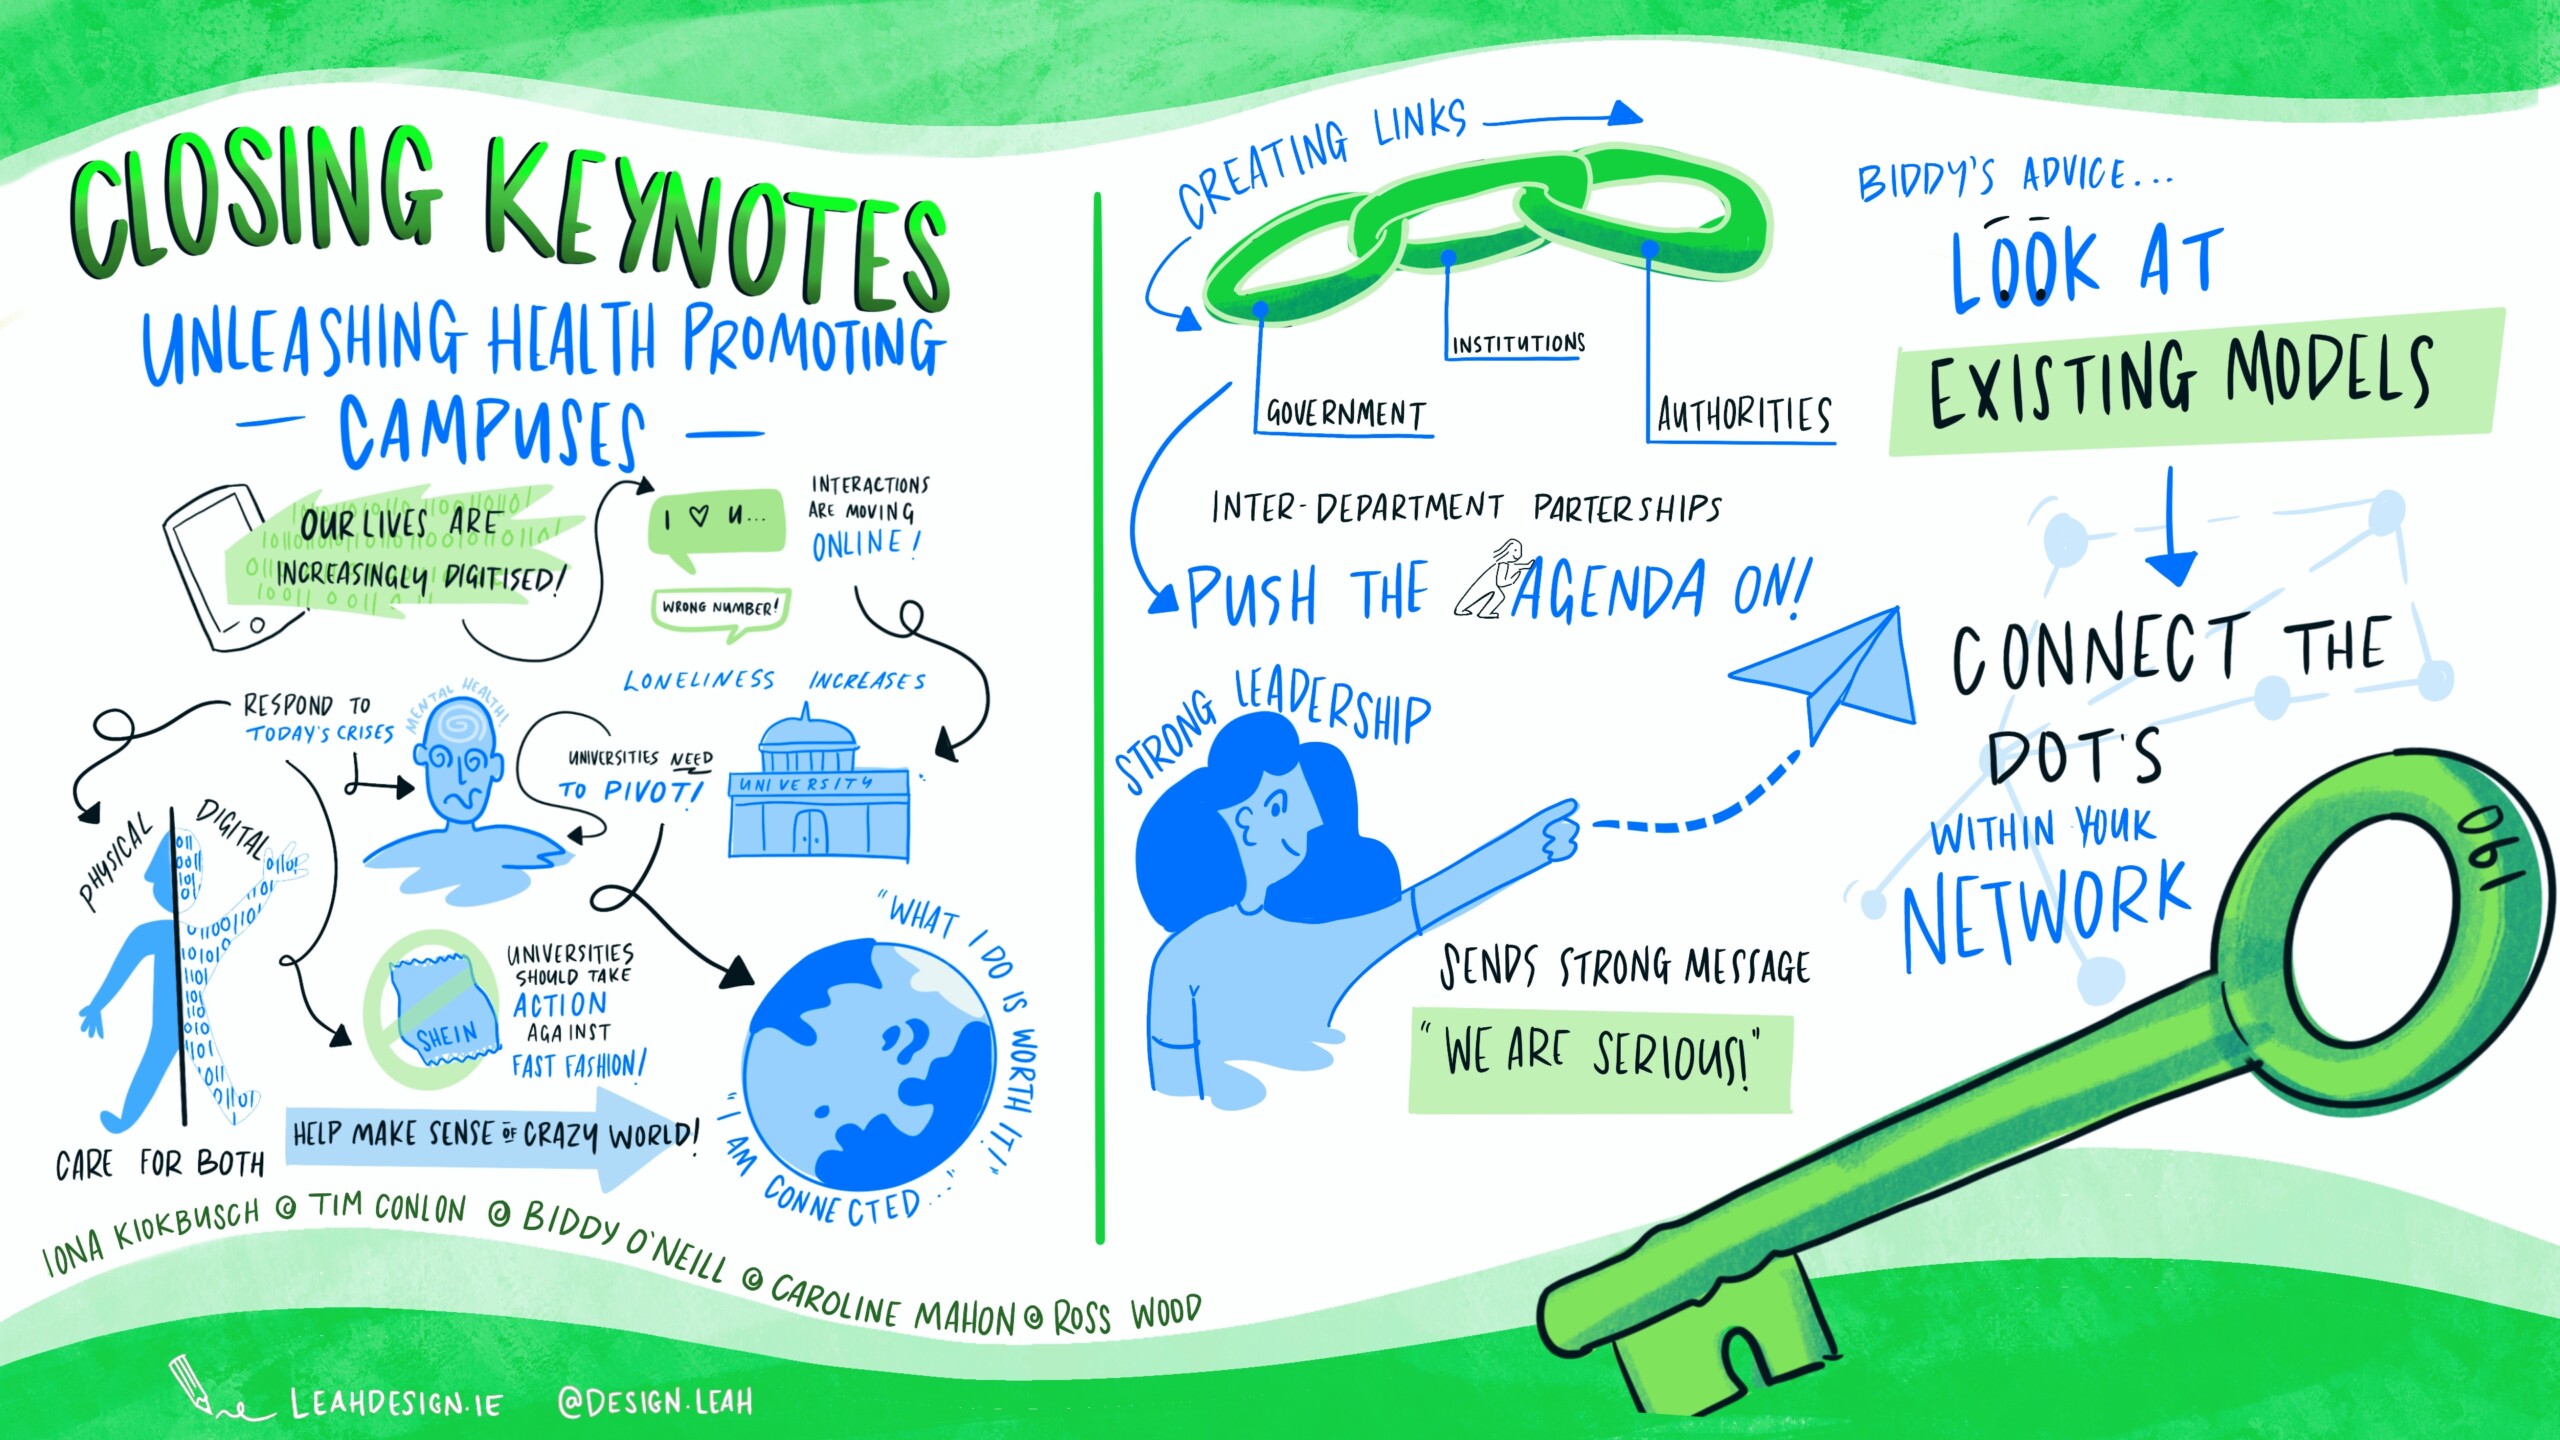 CLOSING KEYNOTES
UNLEASHING HEALTH PROMOTING
— CAMPUSES —
OUR LIVES ARE
INCREASINGLY DIGITISED!
I ♡ U...
WRONG NUMBER!
INTERACTIONS
ARE MOVING
ONLINE!
LONELINESS INCREASES
UNIVERSITY
RESPOND TO
TODAY'S CRISES
MENTAL HEALTH!
UNIVERSITIES NEED
TO PIVOT!
PHYSICAL
DIGITAL
CARE FOR BOTH
SHEIN
UNIVERSITIES
SHOULD TAKE
ACTION
AGAINST
FAST FASHION!
HELP MAKE SENSE OF CRAZY WORLD!
"WHAT I DO IS WORTH IT!"
"I AM CONNECTED..."
IONA KIOKBUSCH @ TIM CONLON @ BIDDY O'NEILL @ CAROLINE MAHON @ ROSS WOOD
LEAHDESIGN.IE @DESIGN.LEAH
CREATING LINKS
GOVERNMENT
INSTITUTIONS
AUTHORITIES
INTER-DEPARTMENT PARTERSHIPS
PUSH THE AGENDA ON!
STRONG LEADERSHIP
SENDS STRONG MESSAGE
"WE ARE SERIOUS!"
BIDDY'S ADVICE...
LOOK AT
EXISTING MODELS
CONNECT THE
DOT'S
WITHIN YOUR
NETWORK